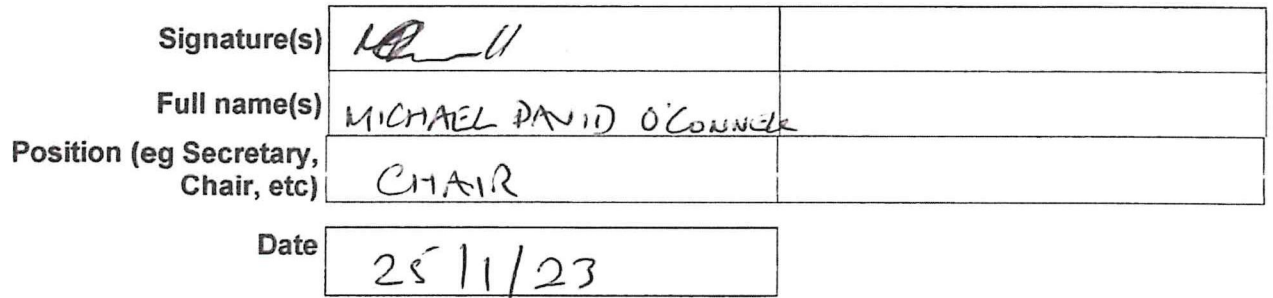 Signature(s)
Full name(s) MICHAEL DAVID O'CONNELL
Position (eg Secretary,
Chair, etc) CHAIR
Date 25/1/23